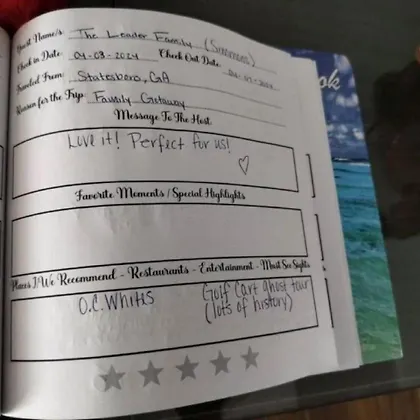 Guest Name/s: The Leader Family (Simmons)
Check in Date: 04-03-2024 Check Out Date:
Traveled From: Statesboro, GA
Reason for the Trip: Family Getaway
Message To The Host
Love it! Perfect for us! ♡
Favorite Moments / Special Highlights
Places I/We Recommend - Restaurants - Entertainment - Must See Sights
O.C. Whitis Golf Cart ghost tour
(lots of history)
ok